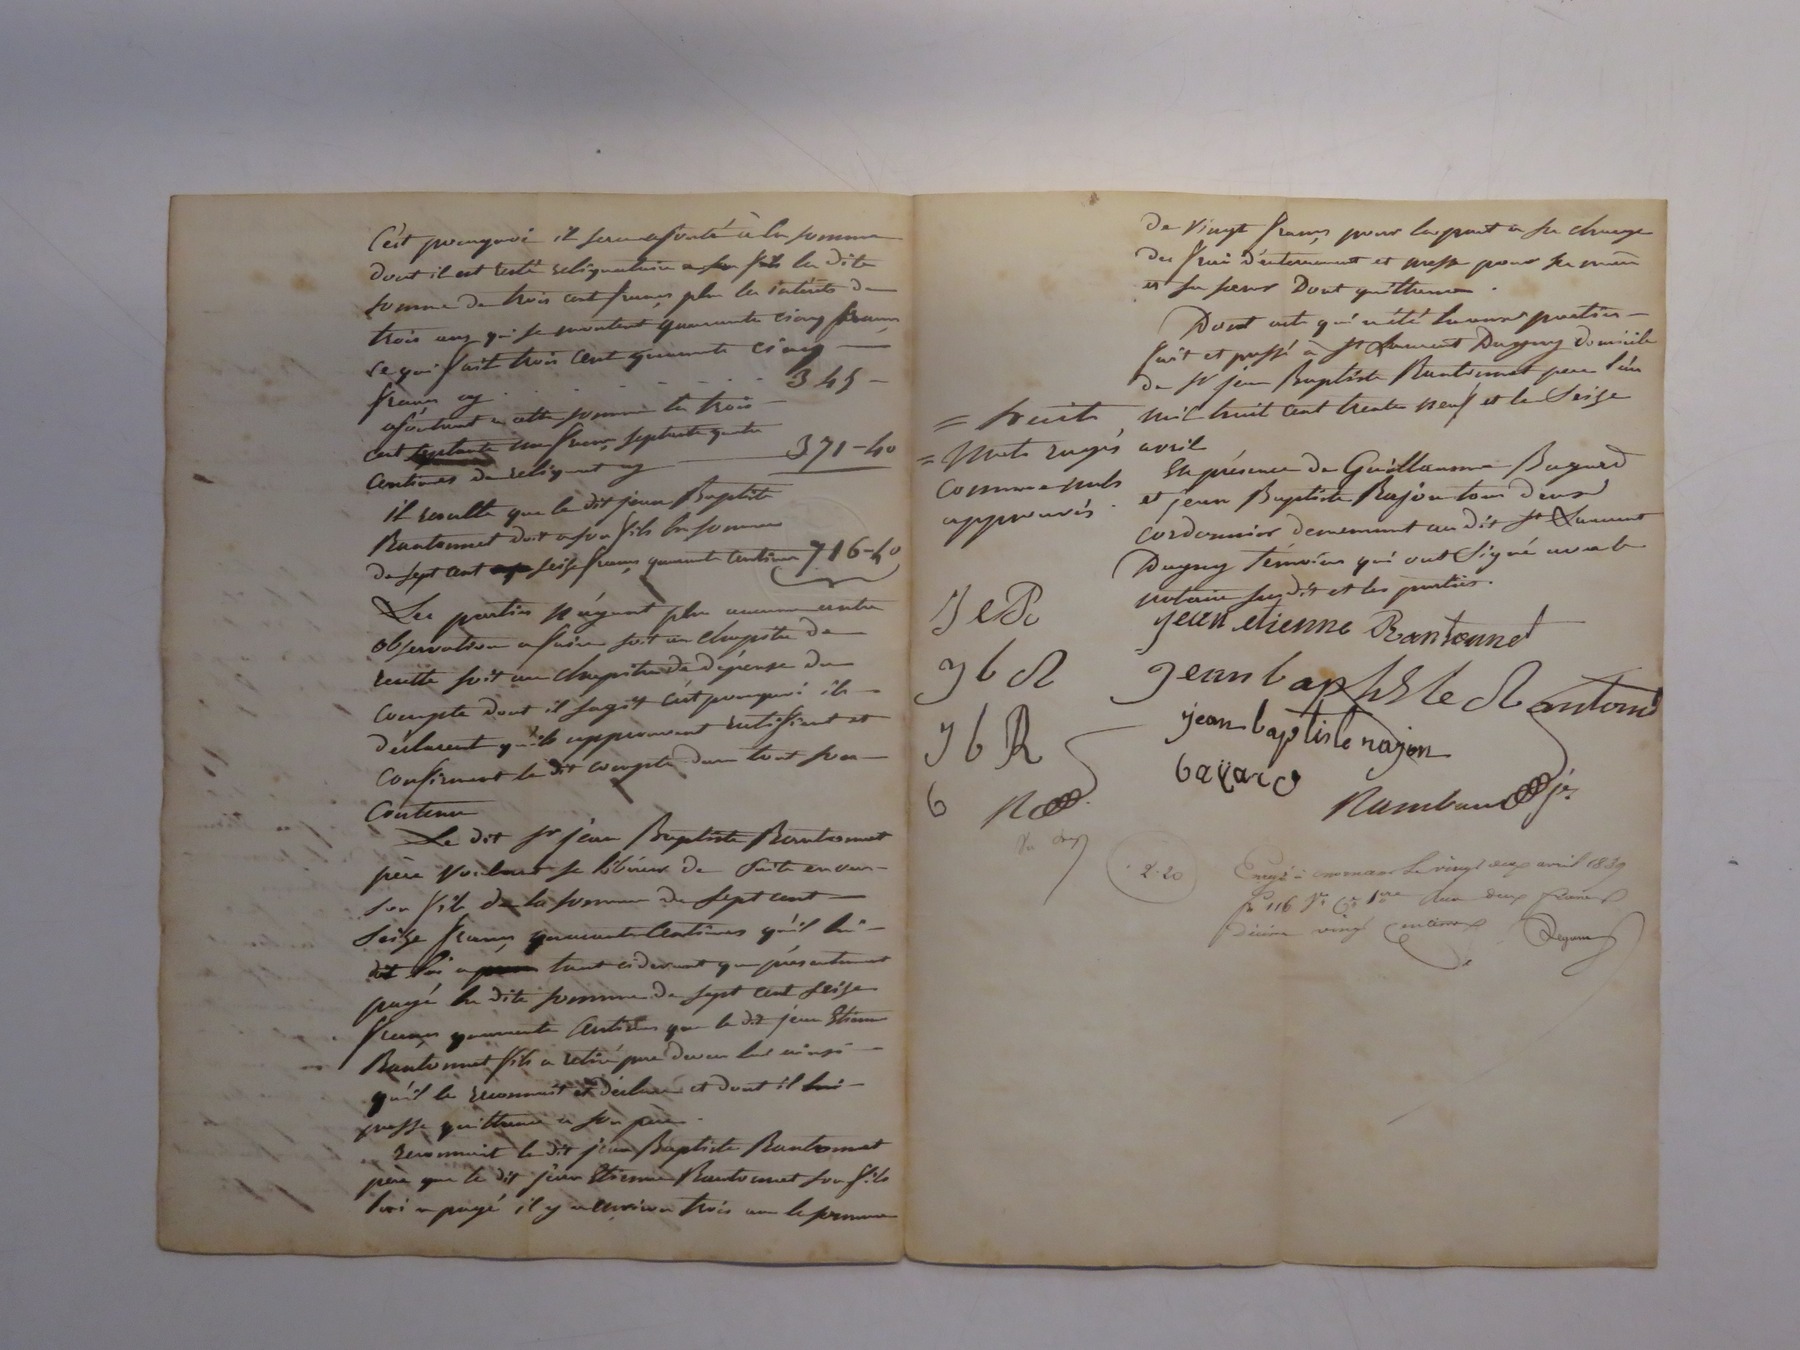 C'est pourquoi il sera ajouté à la somme
dont il est resté reliquataire a son fils la dite
somme de trois cent francs plus les intérêts de
trois ans qui se montent quarante cinq francs
ce qui fait trois cent quarante cinq
francs cy 345 –
ajoutant a cette somme les trois
cent septante un francs septante quatre
centimes de reliquat cy 371–40
il resulte que le dit jean Baptiste
Rantonnet doit a son fils la somme
de sept cent seize francs quarante centimes 716–40
Les parties n'ayant plus aucune autre
observation a faire soit au chapitre de
recette soit au chapitre de dépense du
compte dont il s'agit c'est pourquoi ils
déclarent qu'ils approuvent ratifient et
confirment le dit compte dans tout son
Contenu
Le dit sr jean Baptiste Rantonnet
père voulant se libérer de suite envers
son fils de la somme de sept cent
seize francs quarante centimes qu'il lui
doit lui a tant cidevant que présentement
payé la dite somme de sept cent seize
francs quarante centimes que le dit jean Etienne
Rantonnet fils a retiré pardevers lui ainsi
qu'il le reconnait et déclare et dont il
passe quittance a son père.
reconnait le dit jean Baptiste Rantonnet
père que le dit jean Etienne Rantonnet son fils
lui a payé il y a environ trois ans la somme
de vingt francs pour la part a sa charge
des frais d'enterrement et messe pour sa mère
et sa soeur Dont quittance.
Dont acte qui a été lu aux parties
fait et passé à St Laurent Dugny domicile
de sr jean Baptiste Rantonnet père l'an
mil huit cent trente neuf et le Seize
avril
En présence de Guillaume Bayard
et jean Baptiste Rajon tous deux
cordonnier demeurant au dit St Laurent
Dugny témoins qui ont signé avec le
notaire susdit et les parties.
= huit
= mots rayés
comme nuls
approuvés.
J e R
J b R
J b R
b
R
jean etienne Rantonnet
jean baptiste Rantonnet
jean baptiste rajon
bayard
Rambaud je
2.20
Enregé à mornant le vingt deux avril 1839
fo 116 Vo Ce 1re deux francs
décime vingt centimes